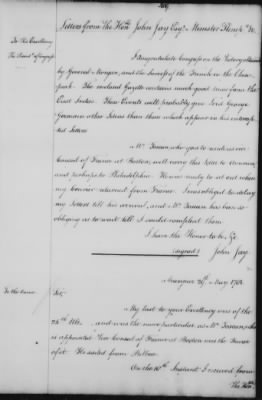 Letters from the Honble. John Jay Esqr. Minister Plenipo. &c.
To His Excellency
The Presidt. of Congress
I congratulate Congress on the Victory obtained
by General Morgan, and the Success of the French in the Chesa-
peak. The enclosed Gazette contains much good news from the
East Indies. These Events will probably give Lord George
Germaine other Ideas than those which appear in his intercep-
ted Letters
Mr. Toscan, who goes to reside as vice
Consul of France at Boston, will carry this Letter to America
and perhaps to Philadelphia. He was ready to set out when
my Courier returned from France. I was obliged to delay
my Letters till his arrival, and Mr. Toscan has been so
obliging as to wait till I could complete them
I have the Honor to be &c
(signed) John Jay
Aranjuez May 1781
To the same
Sir,
My last to your Excellency was of the
25th Ulto. and was the more particular as Mr. Toscan, who
is appointed Vice Consul of France at Boston was the bearer
of it. He sailed from Bilboa.
On the 10th Instant I received from
The Hon